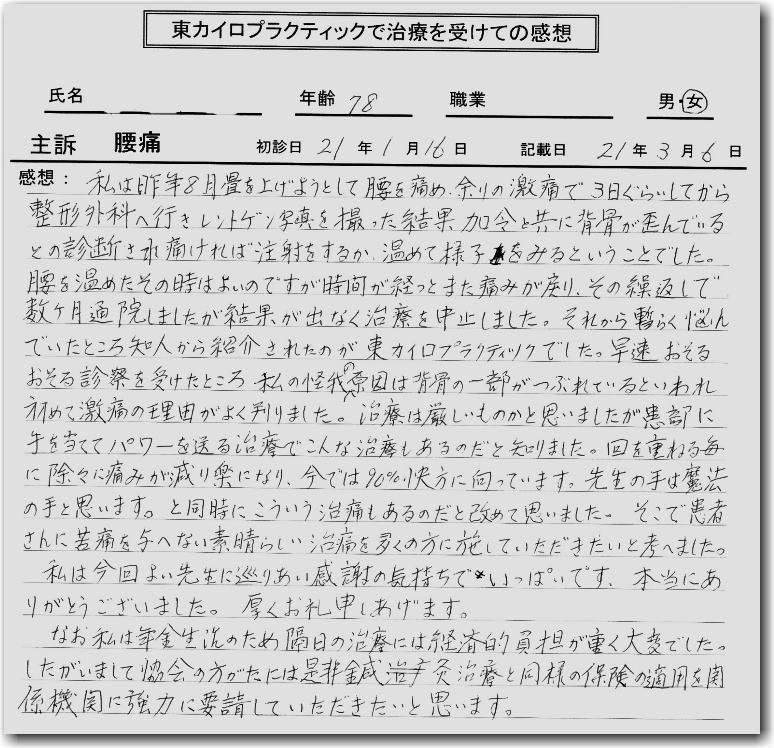 東カイロプラクティックで治療を受けての感想
氏名 年齢 78 職業 男・女
主訴 腰痛 初診日 21年1月16日 記載日 21年3月6日
感想： 私は昨年8月畳を上げようとして腰を痛め、余りの激痛で3日ぐらいしてから
整形外科へ行きレントゲン写真を撮った結果加令と共に背骨が歪んでいる
との診断され痛ければ注射をするか、温めて様子をみるということでした。
腰を温めたその時はよいのですが時間が経つとまた痛みが戻り、その繰返しで
数ヶ月通院しましたが結果が出なく治療を中止しました。それから暫らく悩ん
でいたところ知人から紹介されたのが東カイロプラクティックでした。早速おそる
おそる診察を受けたところ私の怪我の原因は背骨の一部がつぶれているといわれ
初めて激痛の理由がよく判りました。治療は厳しいものかと思いましたが患部に
手を当ててパワーを送る治療でこんな治療もあるのだと知りました。回を重ねる毎
に除々に痛みが減り楽になり、今では90%快方に向っています。先生の手は魔法
の手と思います。と同時にこういう治痛もあるのだと改めて思いました。そこで患者
さんに苦痛を与へない素晴らしい治痛を多くの方に施していただきたいと考へました。
私は今回よい先生に巡りあい感謝の気持ちでいっぱいです、本当にあ
りがとうございました。厚くお礼申しあげます。
なお私は年金生活のため隔日の治療には経済的負担が重く大変でした。
したがいまして協会の方がたには是非鍼治灸治療と同様の保険の適用を関
係機関に強力に要請していただきたいと思います。